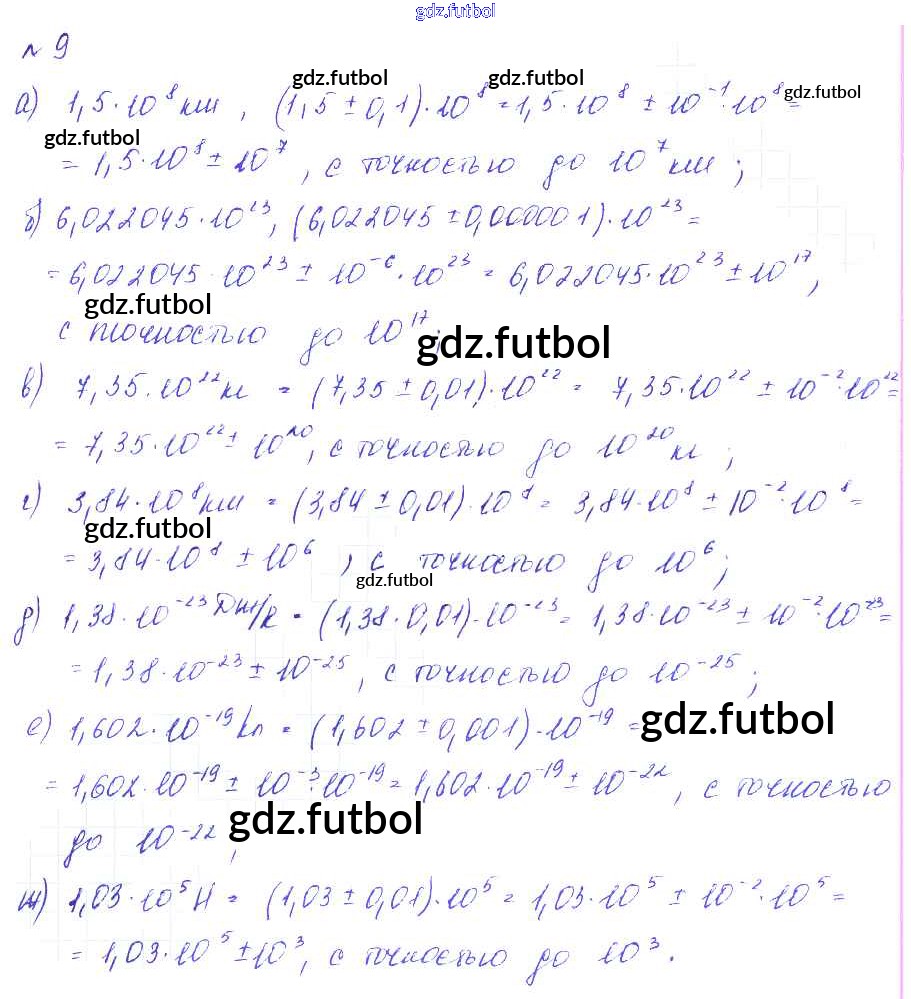 gdz.futbol
№ 9
gdz.futbol gdz.futbol gdz.futbol
а) 1,5·10⁸ км , (1,5 ± 0,1)·10⁸ = 1,5·10⁸ ± 10⁻¹·10⁸ =
gdz.futbol
= 1,5·10⁸ ± 10⁷ , с точностью до 10⁷ км ;
б) 6,022045·10²³, (6,022045 ± 0,000001)·10²³ =
= 6,022045·10²³ ± 10⁻⁶·10²³ = 6,022045·10²³ ± 10¹⁷,
gdz.futbol
с точностью до 10¹⁷;
gdz.futbol
в) 7,35·10²² кг = (7,35 ± 0,01)·10²² = 7,35·10²² ± 10⁻²·10²² =
= 7,35·10²² ± 10²⁰, с точностью до 10²⁰ кг ;
г) 3,84·10⁸ км = (3,84 ± 0,01)·10⁸ = 3,84·10⁸ ± 10⁻²·10⁸ =
gdz.futbol
= 3,84·10⁸ ± 10⁶ , с точностью до 10⁶;
gdz.futbol
д) 1,38·10⁻²³ Дж/К = (1,38·0,01)·10⁻²³ = 1,38·10⁻²³ ± 10⁻²·10⁻²³ =
= 1,38·10⁻²³ ± 10⁻²⁵ , с точностью до 10⁻²⁵ ;
е) 1,602·10⁻¹⁹ Кл = (1,602 ± 0,001)·10⁻¹⁹ =
gdz.futbol
= 1,602·10⁻¹⁹ ± 10⁻³·10⁻¹⁹ = 1,602·10⁻¹⁹ ± 10⁻²² , с точностью
до 10⁻²² ;
gdz.futbol
ж) 1,03·10⁵ Н = (1,03 ± 0,01)·10⁵ = 1,03·10⁵ ± 10⁻²·10⁵ =
= 1,03·10⁵ ± 10³, с точностью до 10³.